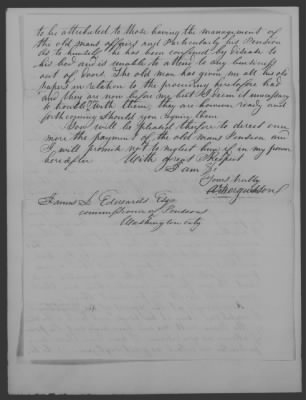 to be attributed to those having the management of
the old mans affairs and Particularly his Pension
As to himself he has been confined by disease to
his bed and is unable to attend to any business
out of doors. The old man has given me all his old
papers in relation to the proceeding heretofore had
and they are now before me, but I deem it unnecessary
to trouble with them, they are however ready and
forthcoming should you require them
You will be pleased therefore to direct once
more the payment of the old mans Pension and
I will promise not to neglect him if in my power
hereafter With great Respect
I am &c
Yours truly
Fergusson
James L Edwards Esqr
commissioner of Pensions
Washington City